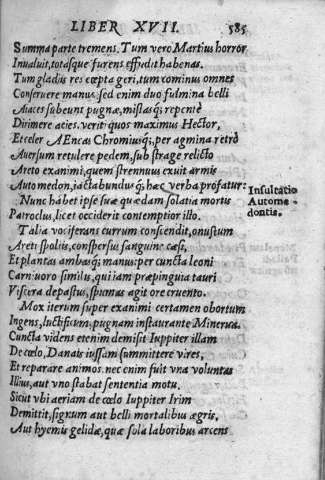 LIBER XVII. 585
Summa parte tremens. Tum vero Martius horror
Invaluit, totasque furens effudit habenas.
Tum gladiis res cœpta geri, tum cominus omnes
Conseruere manus, sed enim duo fulmina belli
Aiaces subeunt pugnæ, mistasq; repentè
Dirimere acies. verit quos maximus Hector,
Et celer AEneas Chromiusq;, per agmina retrò
Aversum retulere pedem, sub strage relicto
Areto exanimi, quem strennuus exuit armis
Automedon, iactabundus q;, hæc verba profatur:
Insultatio
Autome-
dontis.
Nunc habet ipse suæ quædam solatia mortis
Patroclus, licet occiderit contemptior illo.
Talia vociferans currum conscendit, onustum
Areti spoliis, conspersus sanguine cæsi,
Et plantas ambasq; manus: per cuncta leoni
Carnivoro similis, qui iam præpinguia tauri
Viscera depastus, spumas agit ore cruento.
Mox iterum super exanimi certamen obortum
Ingens, luctificum, pugnam instaurante Minerva.
Cuncta videns etenim demisit Iuppiter illam
De cœlo, Danais iussam summittere vires,
Et reparare animos. nec enim fuit una voluntas
Illius, aut uno stabat sententia motu.
Sicut ubi aeriam de cœlo Iuppiter Irim
Demittit, signum aut belli mortalibus ægris,
Aut hyemis gelidæ, quæ sola laboribus arcens